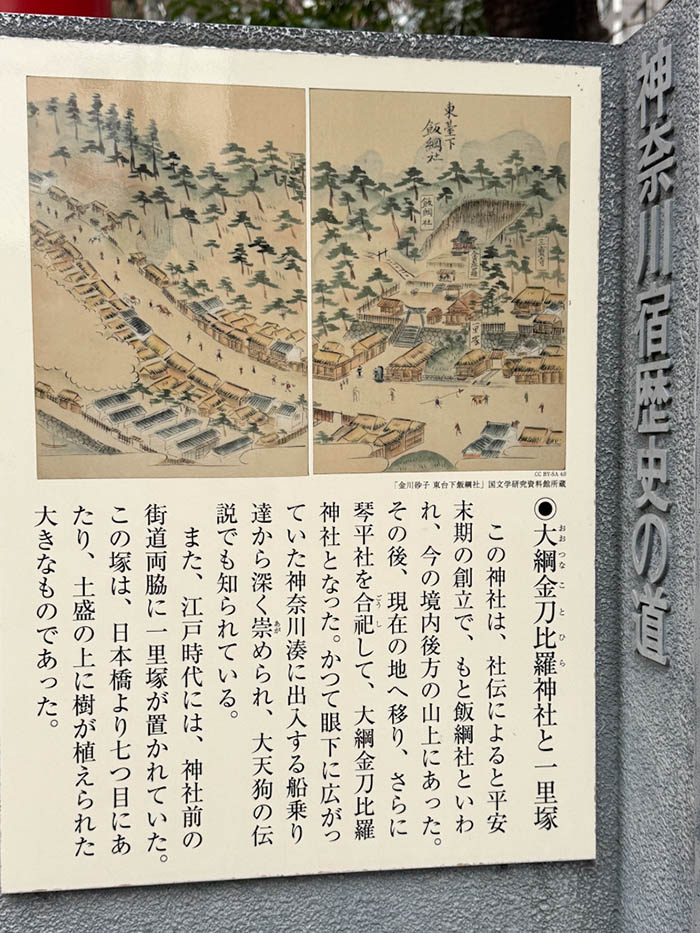 神奈川宿歴史の道
東臺下
飯綱社
飯綱社
金毘羅
三寶寺
一里塚
CC BY-SA 4.0
「金川砂子 東台下飯綱社」国文学研究資料館所蔵
◉大綱金刀比羅神社と一里塚
おおつなことひら
この神社は、社伝によると平安
末期の創立で、もと飯綱社といわ
れ、今の境内後方の山上にあった。
その後、現在の地へ移り、さらに
琴平社を合祀して、大綱金刀比羅
ごうし
神社となった。かつて眼下に広がっ
ていた神奈川湊に出入する船乗り
達から深く崇められ、大天狗の伝
あが
説でも知られている。
また、江戸時代には、神社前の
街道両脇に一里塚が置かれていた。
この塚は、日本橋より七つ目にあ
たり、土盛の上に樹が植えられた
大きなものであった。